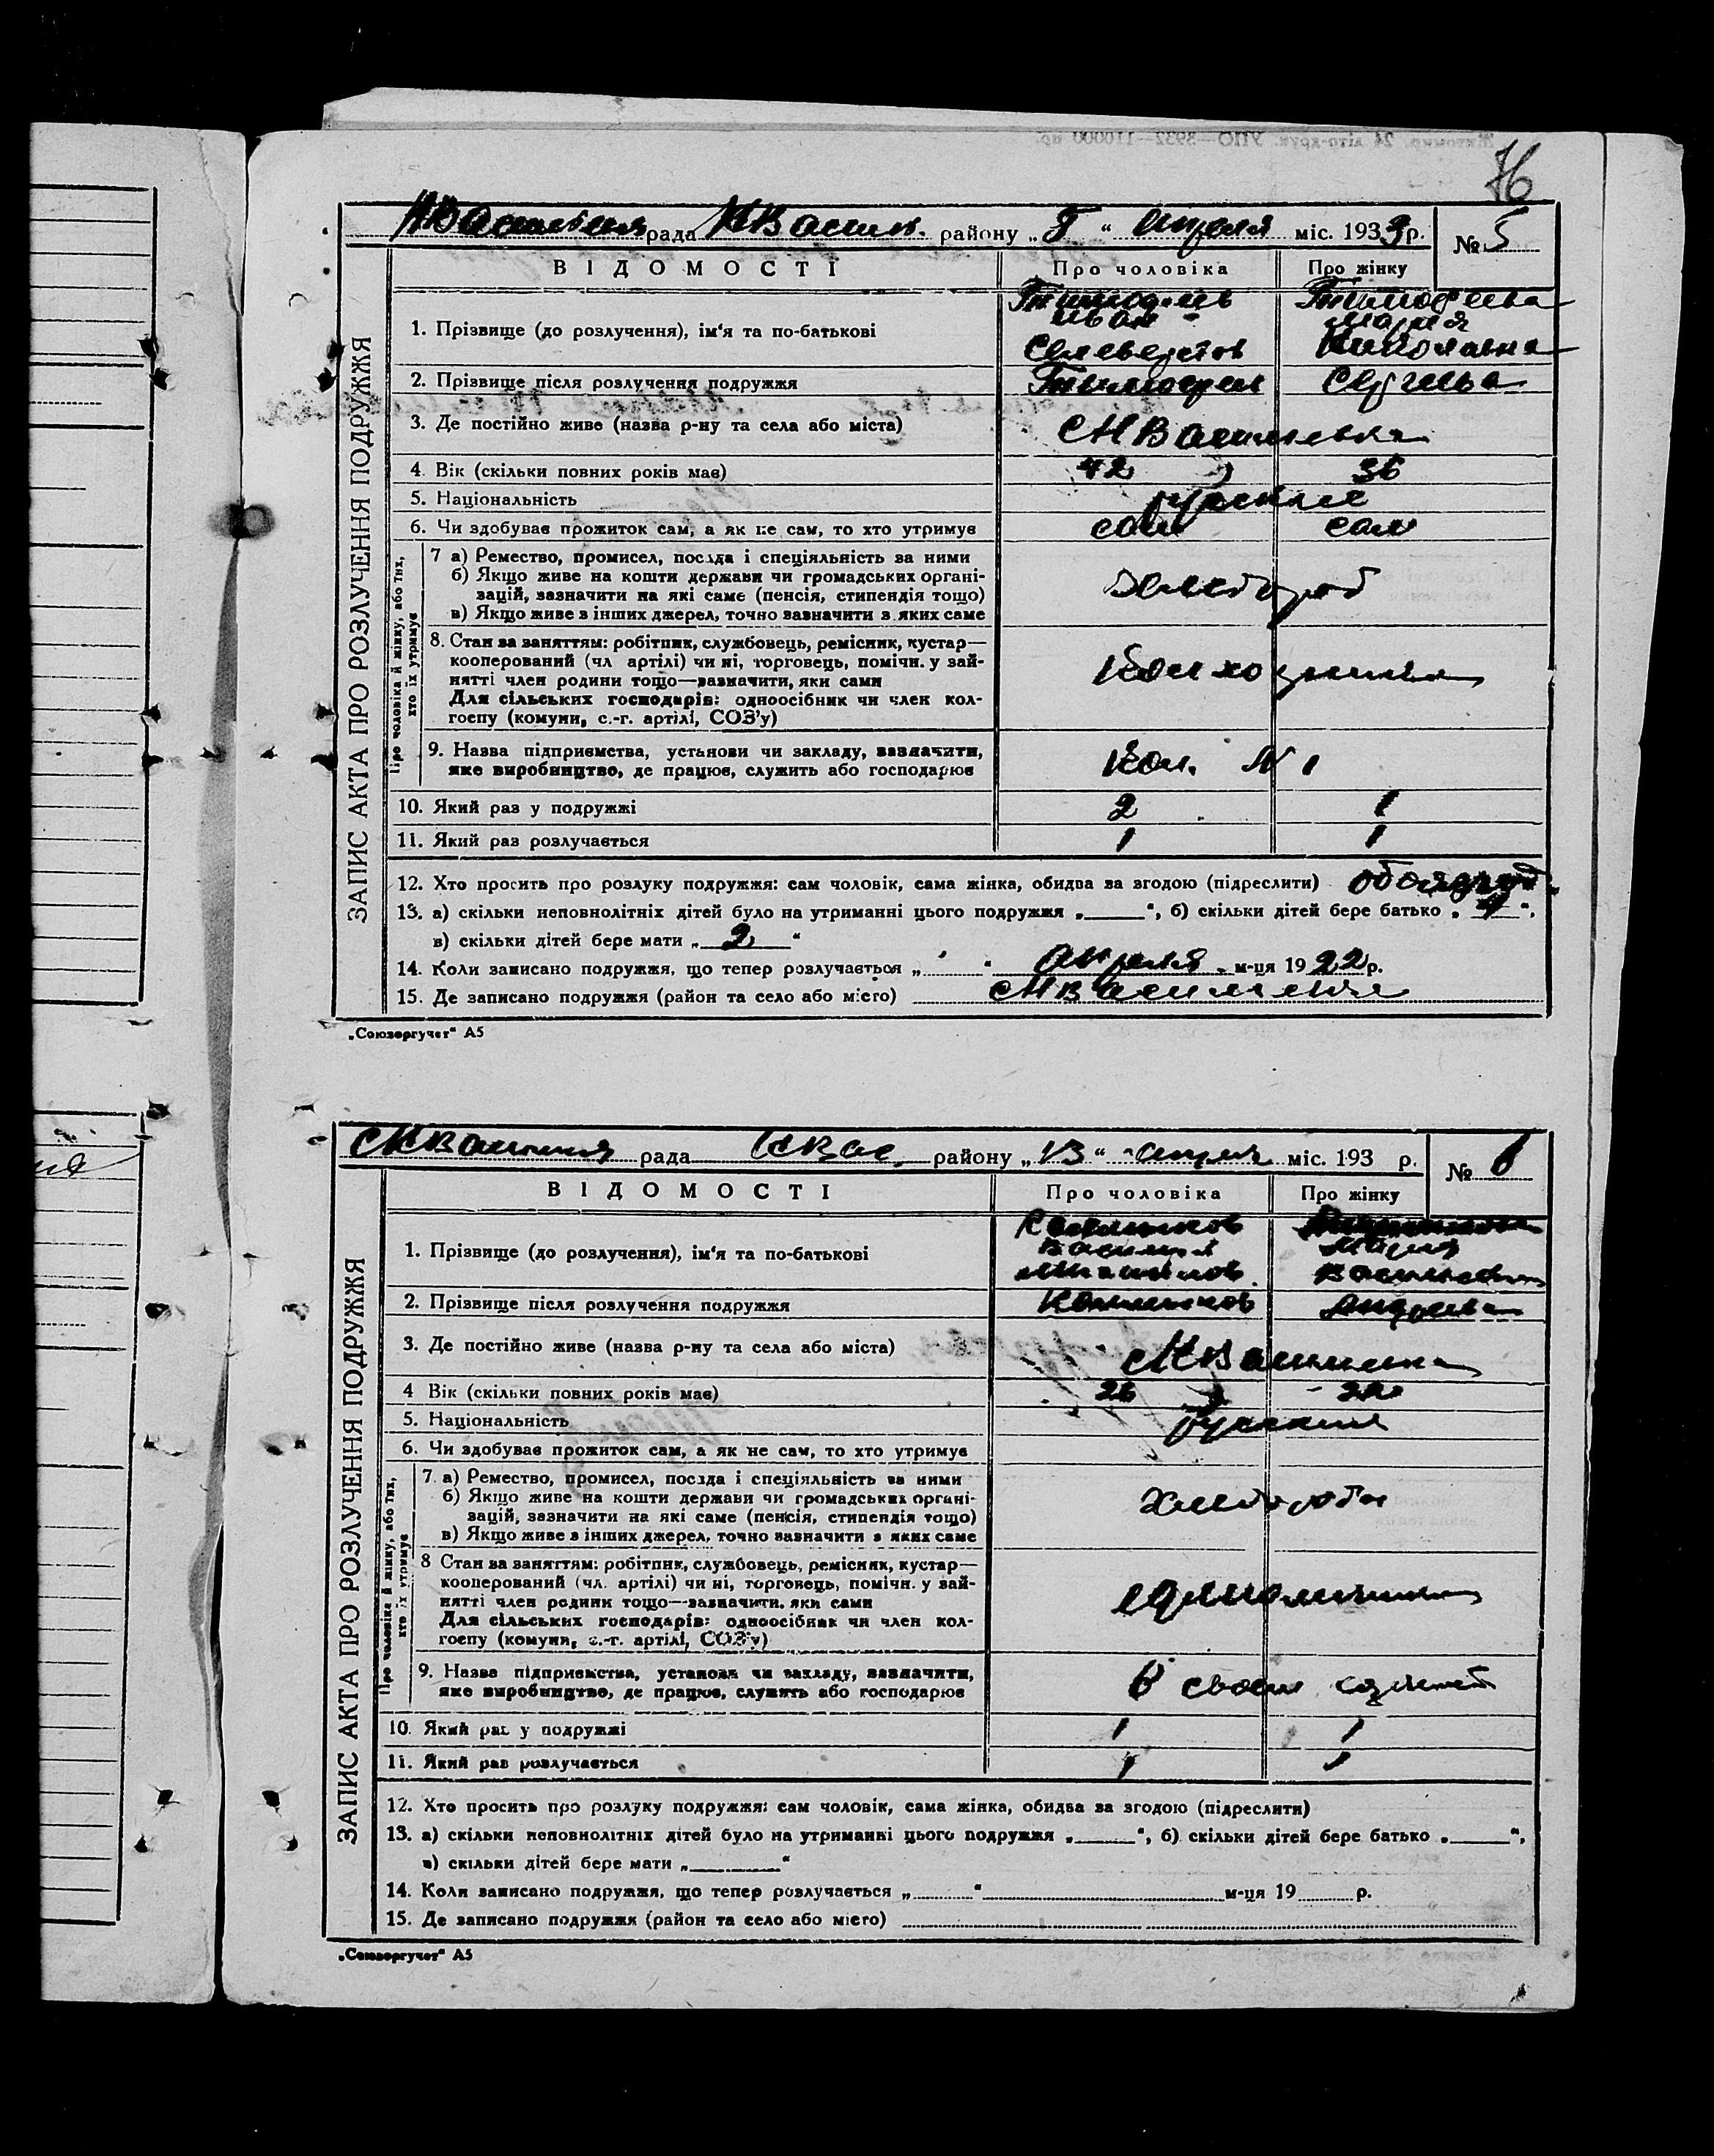 76
рада району „ 5 “ апреля міс. 1933 р. № 5
ВІДОМОСТІ Про чоловіка Про жінку
1. Прізвище (до розлучення), ім'я та по-батькові
Тимофеев Тимофеева
Иван Мария
Селеверстов Николаевна
2. Прізвище після розлучення подружжя Тимофеев Сергеева
3. Де постійно живе (назва р-ну та села або міста)
4. Вік (скільки повних років має) 42 36
5. Національність русские
6. Чи здобував прожиток сам, а як не сам, то хто утримує сам сам
Про чоловіка й жінку, або тих,
хто їх утримує
7 а) Ремество, промисел, посада і спеціяльність за ними
б) Якщо живе на кошти держави чи громадських органі-
зацій, зазначити на які саме (пенсія, стипендія тощо)
в) Якщо живе з інших джерел, точно зазначити з яких саме
хлебороб
8. Стан за заняттям: робітник, службовець, ремісник, кустар—
кооперований (чл артілі) чи ні, торговець, помічн. у зай-
нятті член родини тощо—зазначити, яки сами
Для сільських господарів: одноосібник чи член кол-
госпу (комуни, с.-г. артілі, СОЗ'у)
9. Назва підприємства, установи чи закладу, зазначити,
яке виробництво, де працює, служить або господарює
Кол. № 1
10. Який раз у подружжі 2 1
11. Який раз розлучається 1 1
12. Хто просить про розлуку подружжя: сам чоловік, сама жінка, обидва за згодою (підреслити)
13. а) скільки неповнолітніх дітей було на утриманні цього подружжя „ “, б) скільки дітей бере батько „ “,
в) скільки дітей бере мати „ 2 “
14. Коли записано подружжя, що тепер розлучається „ “ апреля м-ця 1922 р.
15. Де записано подружжя (район та село або місто)
ЗАПИС АКТА ПРО РОЗЛУЧЕННЯ ПОДРУЖЖЯ
„Союзоргучет“ А5
рада району „ 13 “ апреля міс. 193 р. № 6
ВІДОМОСТІ Про чоловіка Про жінку
1. Прізвище (до розлучення), ім'я та по-батькові
Василий Мария
2. Прізвище після розлучення подружжя Андреева
3. Де постійно живе (назва р-ну та села або міста)
4 Вік (скільки повних років має) 26
5. Національність русские
6. Чи здобував прожиток сам, а як не сам, то хто утримує
Про чоловіка й жінку, або тих,
хто їх утримує
7. а) Ремество, промисел, посада і спеціяльність за ними
б) Якщо живе на кошти держави чи громадських органі-
зацій, зазначити на які саме (пенсія, стипендія тощо)
в) Якщо живе з інших джерел, точно зазначити з яких саме
8 Стан за заняттям: робітник, службовець, ремісник, кустар—
кооперований (чл. артілі) чи ні, торговець, помічн. у зай-
нятті член родини тощо—зазначити, яки сами
Для сільських господарів: одноосібник чи член кол-
госпу (комуни, с.-г. артілі, СОЗ'у)
9. Назва підприємства, установи чи закладу, зазначити,
яке виробництво, де працює, служить або господарює
В своем
10. Який раз у подружжі 1 1
11. Який раз розлучається 1 1
12. Хто просить про розлуку подружжя: сам чоловік, сама жінка, обидва за згодою (підреслити)
13. а) скільки неповнолітніх дітей було на утриманні цього подружжя „ “, б) скільки дітей бере батько „ “,
в) скільки дітей бере мати „ “
14. Коли записано подружжя, що тепер розлучається „ “ м-ця 19 р.
15. Де записано подружжя (район та село або місто)
ЗАПИС АКТА ПРО РОЗЛУЧЕННЯ ПОДРУЖЖЯ
„Союзоргучет“ А5